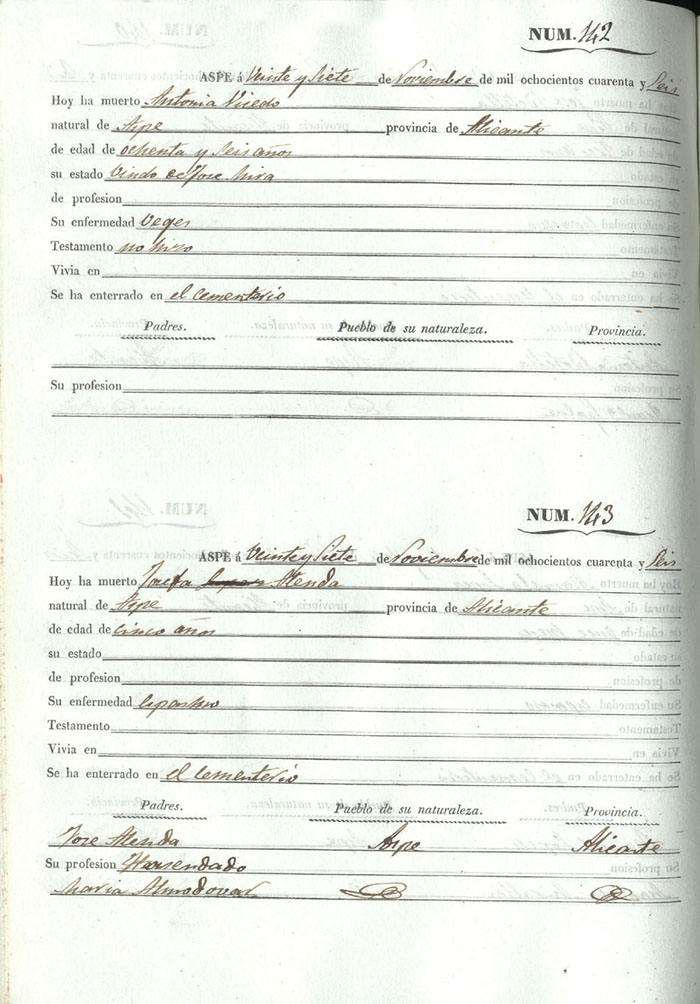 NUM. 142
ASPE á Veinte y Siete de Noviembre de mil ochocientos cuarenta y Seis
Hoy ha muerto Antonia
natural de Aspe provincia de Alicante
de edad de ochenta y seis años
su estado Vindo de Jose Mira
de profesion
Su enfermedad Veges
Testamento no hizo
Vivia en
Se ha enterrado en el cementerio
Padres. Pueblo de su naturaleza. Provincia.
Su profesion
NUM. 143
ASPE á Veinte y Siete de Noviembre de mil ochocientos cuarenta y Seis
Hoy ha muerto Josefa
natural de Aspe provincia de Alicante
de edad de cinco años
su estado
de profesion
Su enfermedad
Testamento
Vivia en
Se ha enterrado en el Cementerio
Padres. Pueblo de su naturaleza. Provincia.
Jose Aspe Alicante
Su profesion Hasendado
Maria Almodovar